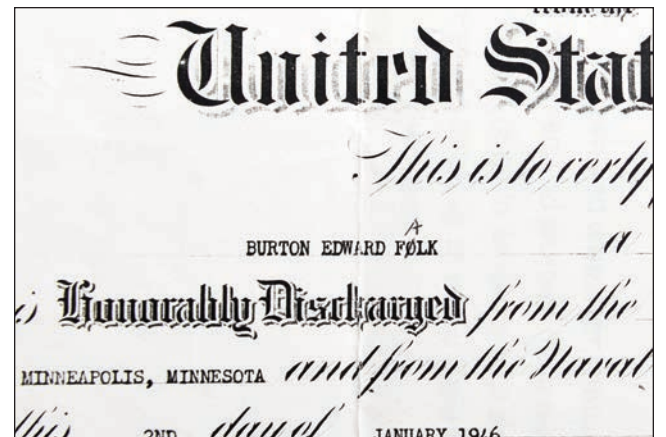 from the
United Stat
This is to certify
A
BURTON EDWARD FOLK a
is Honorably Discharged from the
MINNEAPOLIS, MINNESOTA and from the Naval
this 2ND day of JANUARY 1946